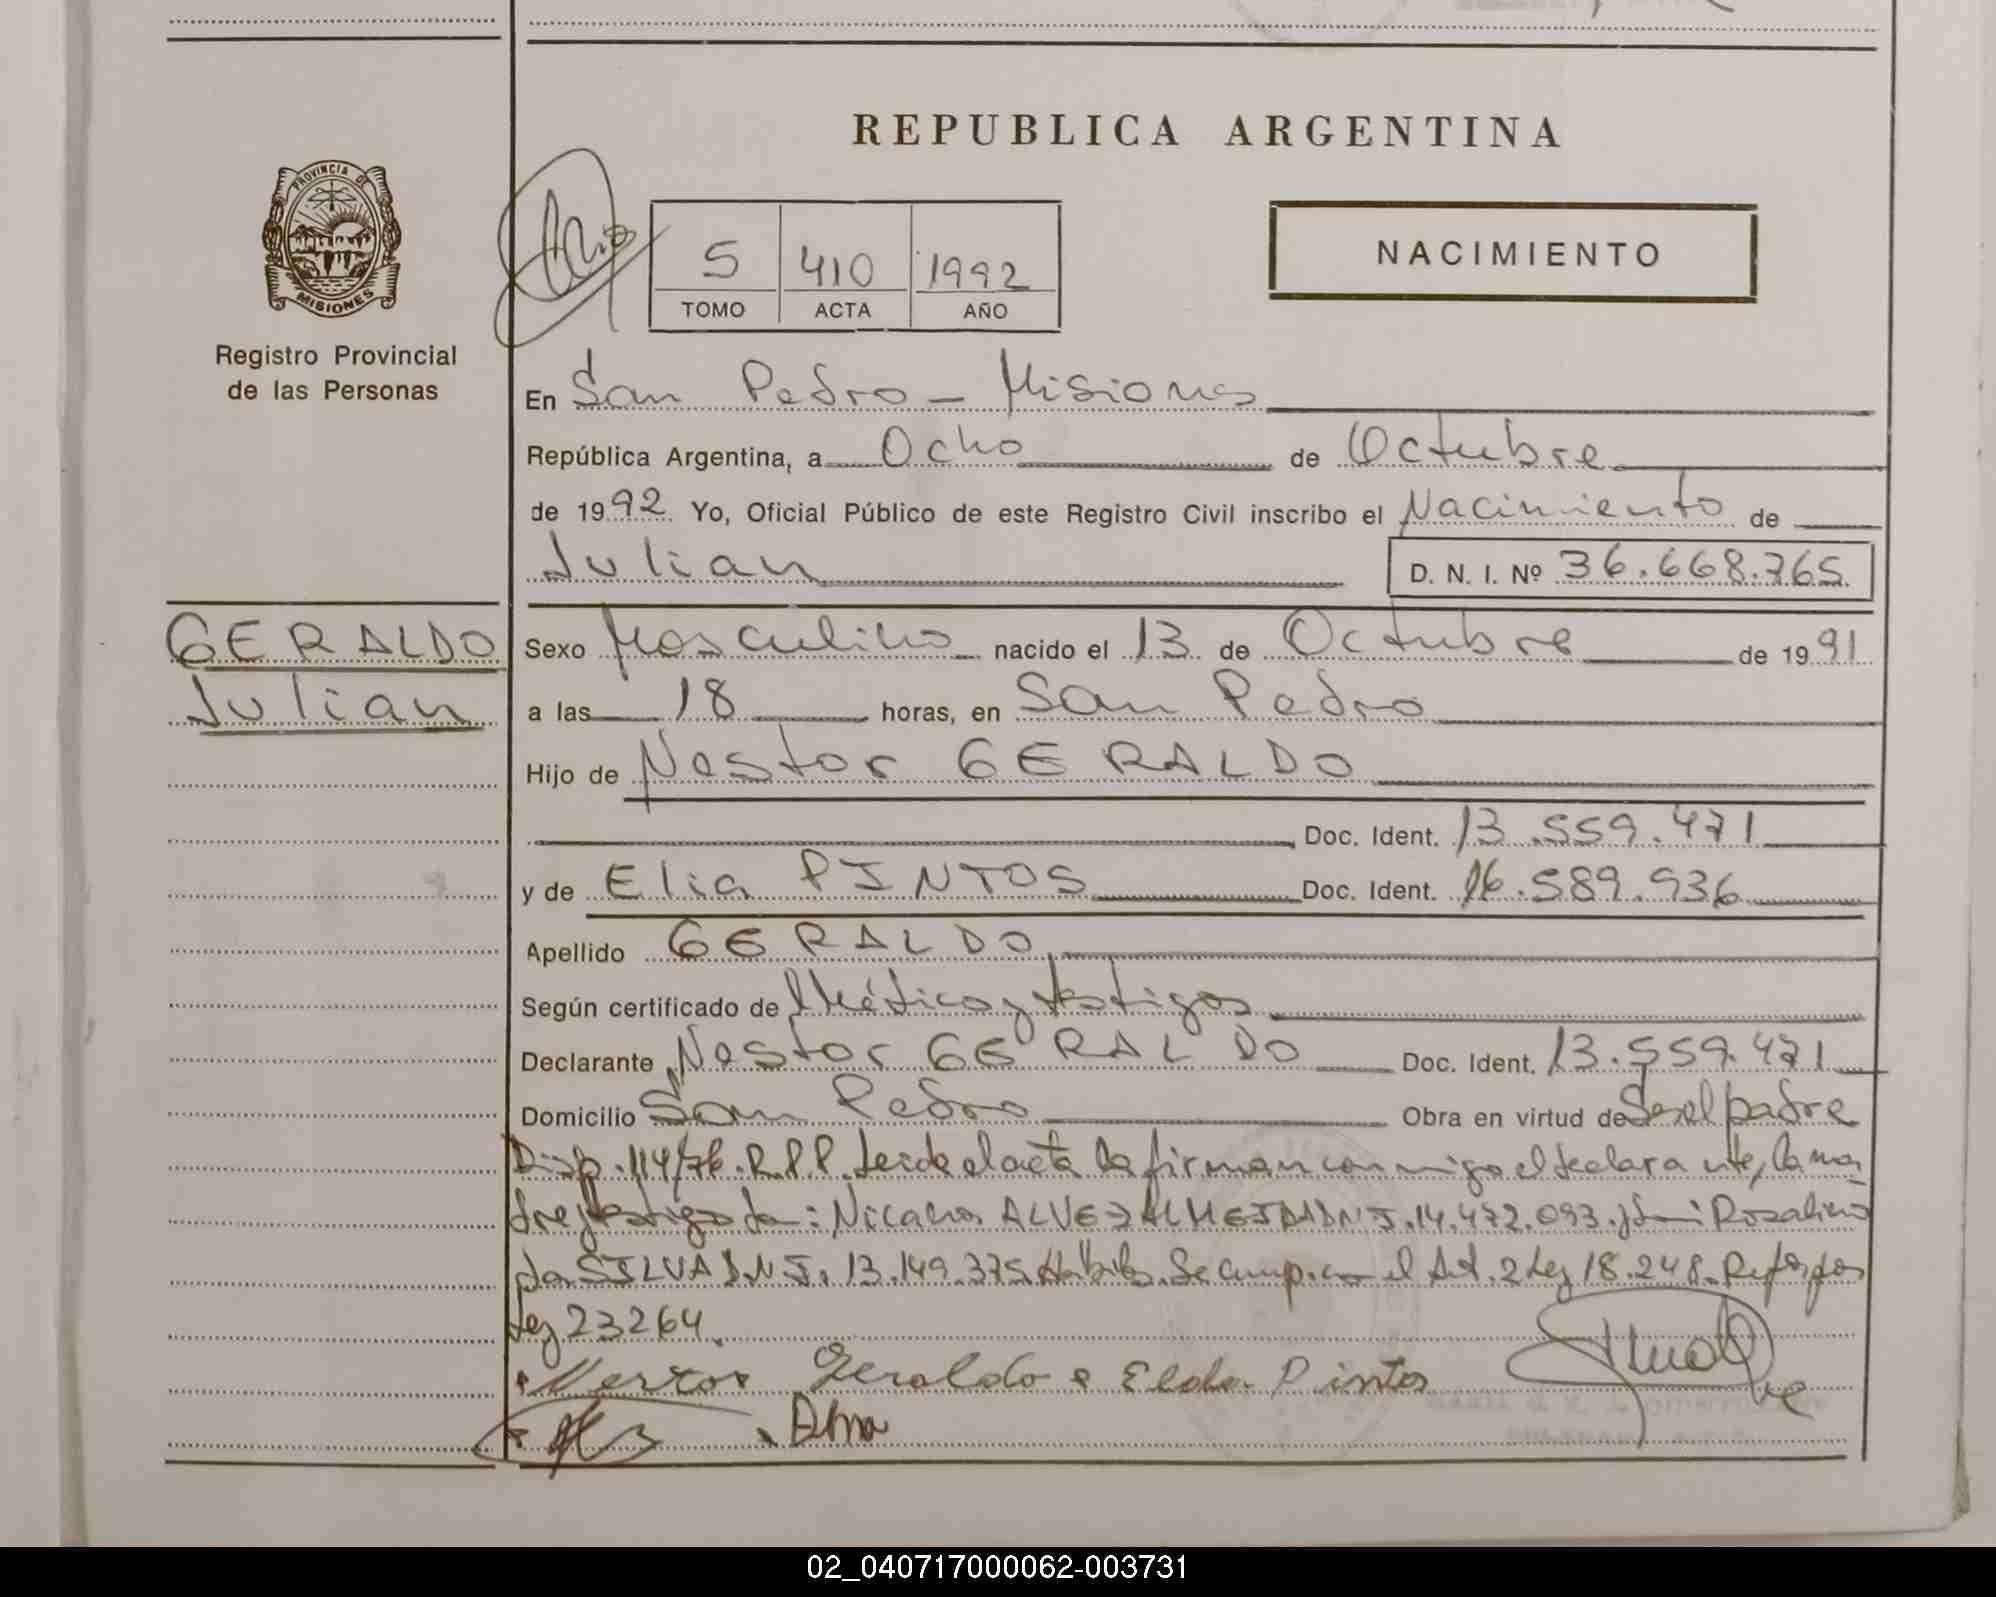 REPUBLICA ARGENTINA
PROVINCIA DE
MISIONES
Registro Provincial
de las Personas
5 410 1992
TOMO ACTA AÑO
NACIMIENTO
En San Pedro - Misiones
República Argentina, a Ocho de Octubre
de 1992 Yo, Oficial Público de este Registro Civil inscribo el Nacimiento de
Julian D. N. I. Nº 36.668.765
GERALDO
Julian
Sexo Masculino nacido el 13 de Octubre de 1991
a las 18 horas, en San Pedro
Hijo de Nestor GERALDO
Doc. Ident. 13.559.471
y de Elia PINTOS Doc. Ident. 16.589.936
Apellido GERALDO
Según certificado de Médico y testigos
Declarante Nestor GERALDO Doc. Ident. 13.559.471
Domicilio San Pedro Obra en virtud de Ser el padre
Disp. 114/76. R.P.P. Leida el acta la firman conmigo el declarante, la ma
dre y testigos de: ALVEZ ALMEIDA DNI. 14.472.093. y Rosalino
da SILVA D.N.I. 13.149.375 Habiles. Se cump. con el Art. 2 Ley 18.248. Ref. por
Ley 23264.
Nestor Geraldo Elda Pintos
02_040717000062-003731